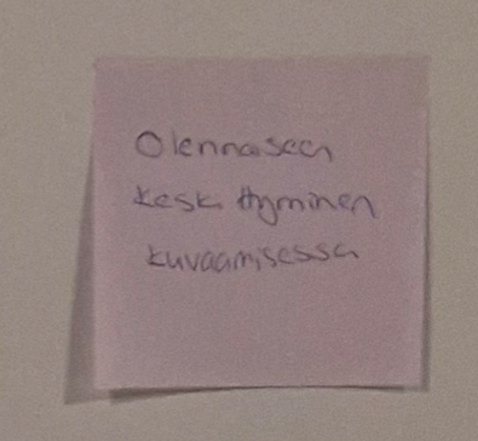 Olennaseen
keskittyminen
kuvaamisessa